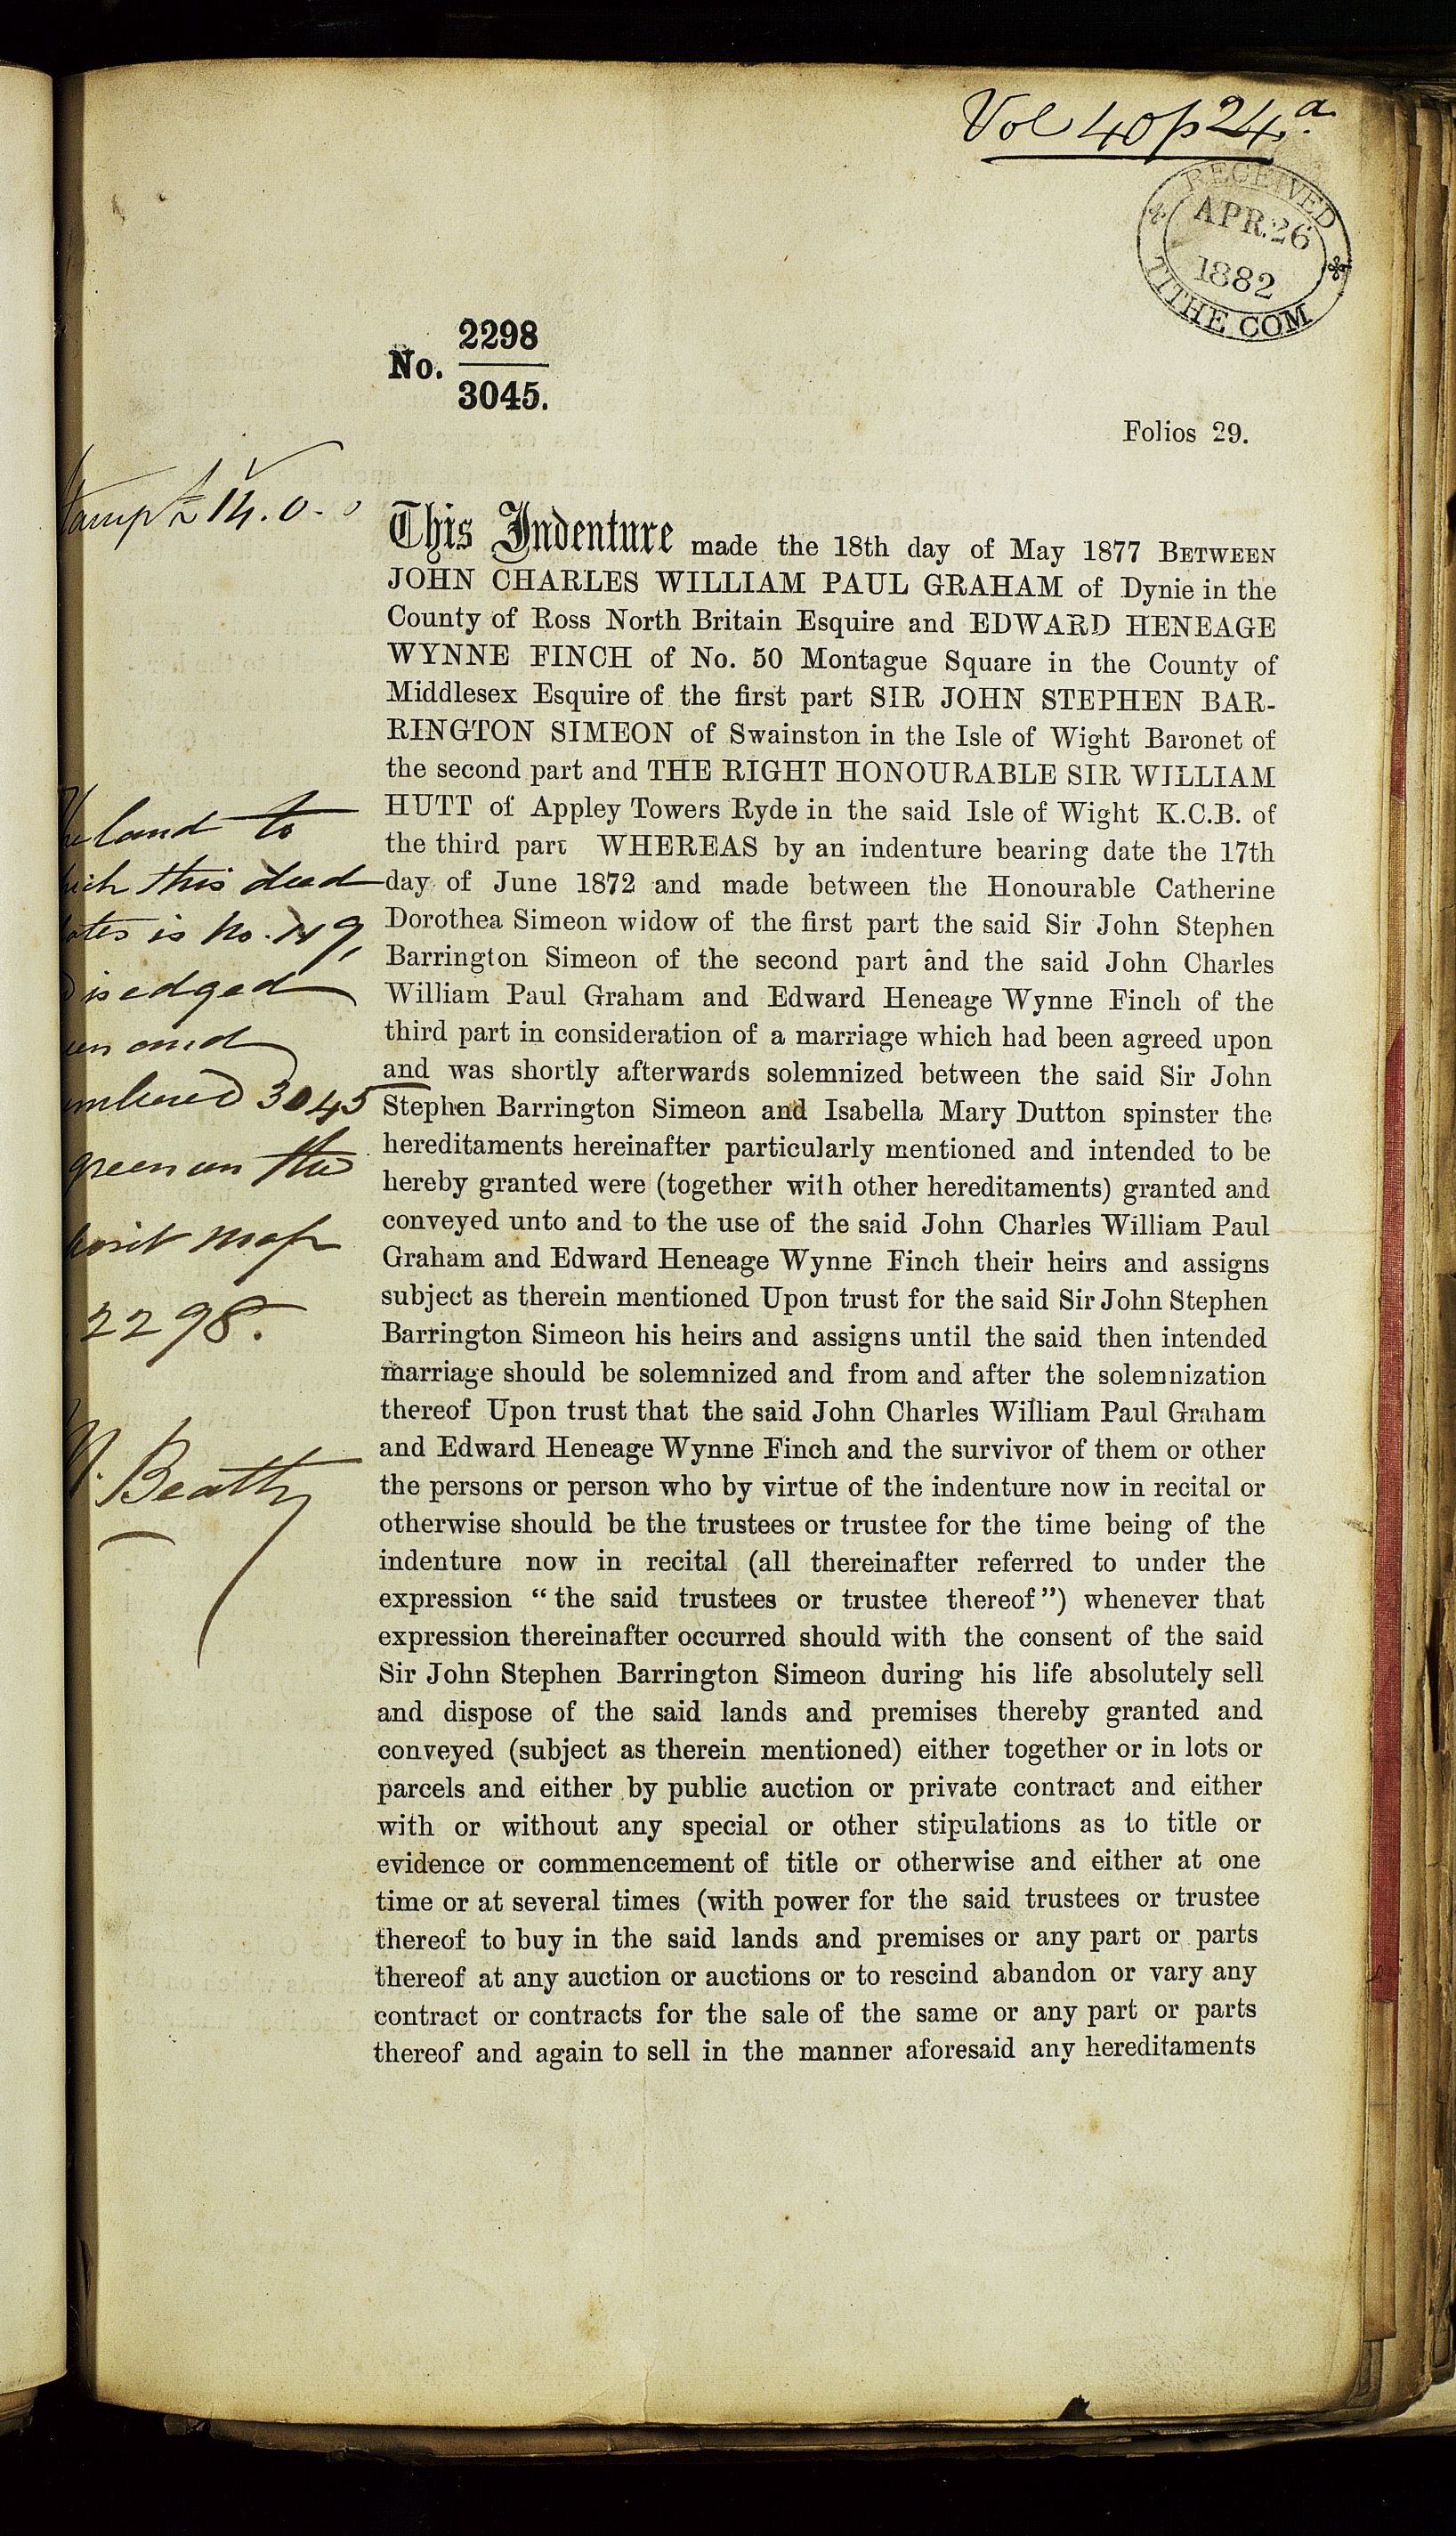 Vol 40 p 24.a
RECEIVED
APR. 26
1882
TITHE COM
No. 2298
3045.
Folios 29.
£14. 0. 0
This Indenture made the 18th day of May 1877 BETWEEN
JOHN CHARLES WILLIAM PAUL GRAHAM of Dynie in the
County of Ross North Britain Esquire and EDWARD HENEAGE
WYNNE FINCH of No. 50 Montague Square in the County of
Middlesex Esquire of the first part SIR JOHN STEPHEN BAR-
RINGTON SIMEON of Swainston in the Isle of Wight Baronet of
the second part and THE RIGHT HONOURABLE SIR WILLIAM
HUTT of Appley Towers Ryde in the said Isle of Wight K.C.B. of
the third part WHEREAS by an indenture bearing date the 17th
day of June 1872 and made between the Honourable Catherine
Dorothea Simeon widow of the first part the said Sir John Stephen
Barrington Simeon of the second part and the said John Charles
William Paul Graham and Edward Heneage Wynne Finch of the
third part in consideration of a marriage which had been agreed upon
and was shortly afterwards solemnized between the said Sir John
Stephen Barrington Simeon and Isabella Mary Dutton spinster the
hereditaments hereinafter particularly mentioned and intended to be
hereby granted were (together with other hereditaments) granted and
conveyed unto and to the use of the said John Charles William Paul
Graham and Edward Heneage Wynne Finch their heirs and assigns
subject as therein mentioned Upon trust for the said Sir John Stephen
Barrington Simeon his heirs and assigns until the said then intended
marriage should be solemnized and from and after the solemnization
thereof Upon trust that the said John Charles William Paul Graham
and Edward Heneage Wynne Finch and the survivor of them or other
the persons or person who by virtue of the indenture now in recital or
otherwise should be the trustees or trustee for the time being of the
indenture now in recital (all thereinafter referred to under the
expression "the said trustees or trustee thereof") whenever that
expression thereinafter occurred should with the consent of the said
Sir John Stephen Barrington Simeon during his life absolutely sell
and dispose of the said lands and premises thereby granted and
conveyed (subject as therein mentioned) either together or in lots or
parcels and either by public auction or private contract and either
with or without any special or other stipulations as to title or
evidence or commencement of title or otherwise and either at one
time or at several times (with power for the said trustees or trustee
thereof to buy in the said lands and premises or any part or parts
thereof at any auction or auctions or to rescind abandon or vary any
contract or contracts for the sale of the same or any part or parts
thereof and again to sell in the manner aforesaid any hereditaments
land to
this deed
is No.
is edged
and
3045
green on the
map
2298.
Beatty